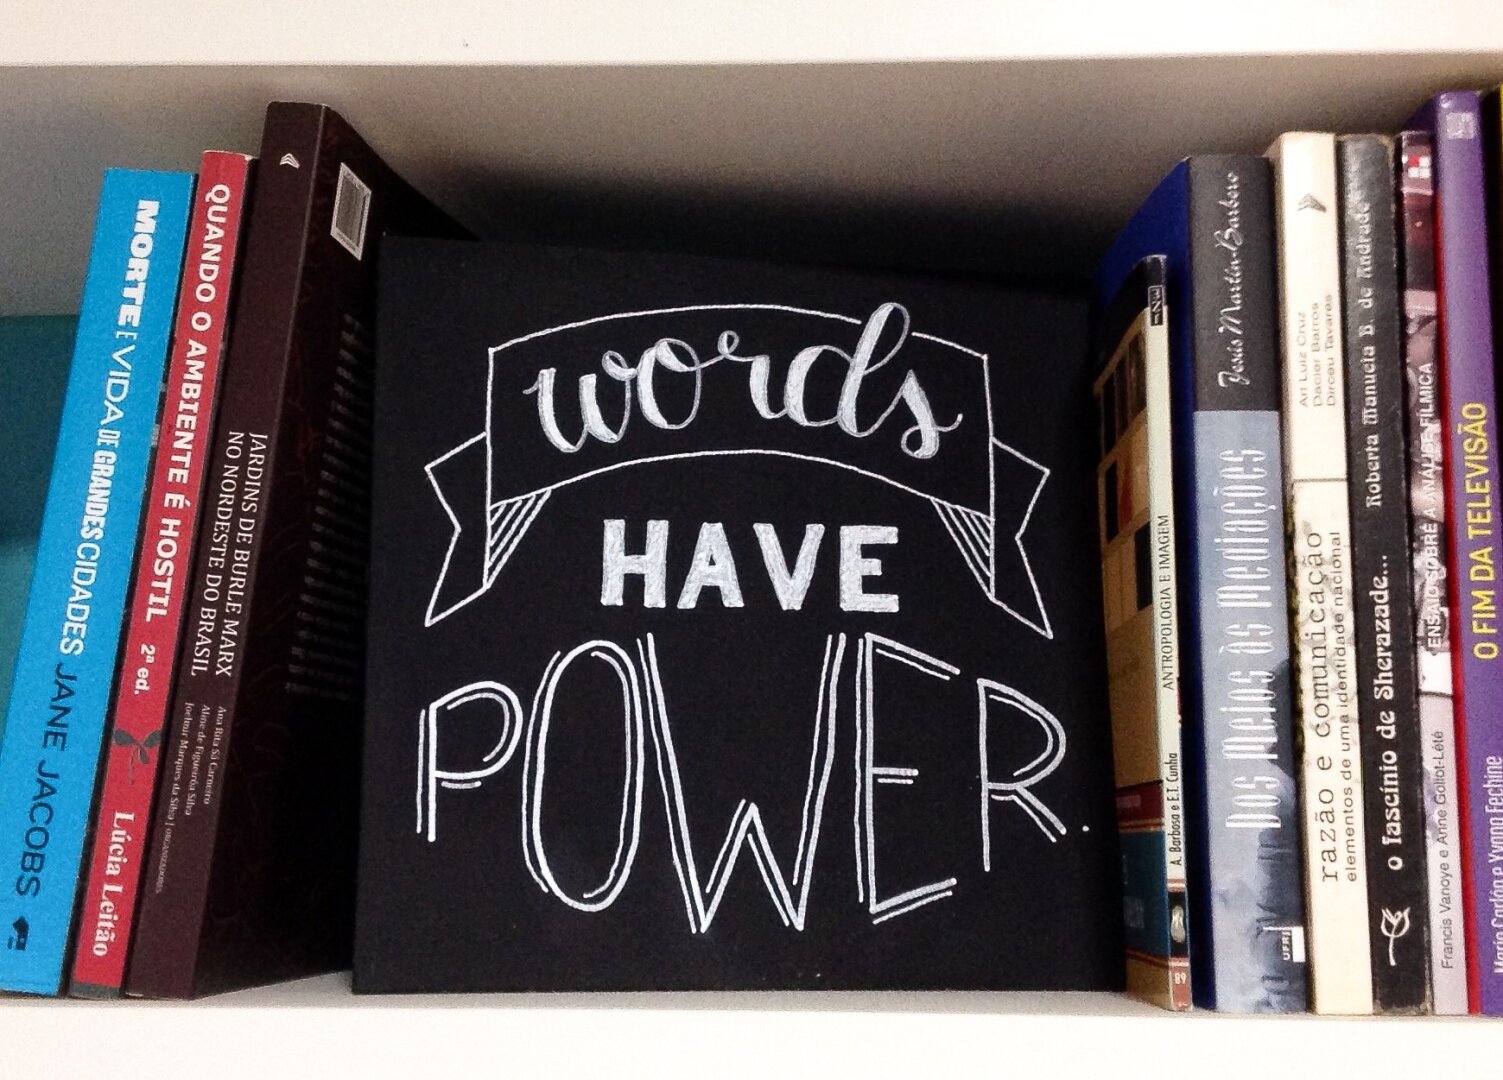 MORTE E VIDA DE GRANDES CIDADES JANE JACOBS
QUANDO O AMBIENTE É HOSTIL 2ª ed. Lúcia Leitão
JARDINS DE BURLE MARX
NO NORDESTE DO BRASIL
Ana Rita Sá Carneiro
Aline de Figueirôa Silva
Joelmir Marques da Silva | ORGANIZADORES
words
HAVE
POWER.
ANTROPOLOGIA E IMAGEM
A. Barbosa e E.T. Cunha
89
Jesús Martín-Barbero
Dos Meios às Mediações
UFRJ
Ari Luiz Cruz
Dacier Barros
Dirceu Tavares
razão e comunicação
elementos de uma identidade nacional
Roberta Manuela B. de Andrade
o fascínio de Sherazade...
ENSAIO SOBRE A ANÁLISE FÍLMICA
Francis Vanoye e Anne Goliot-Lété
O FIM DA TELEVISÃO
Mario Carlón e Yvana Fechine